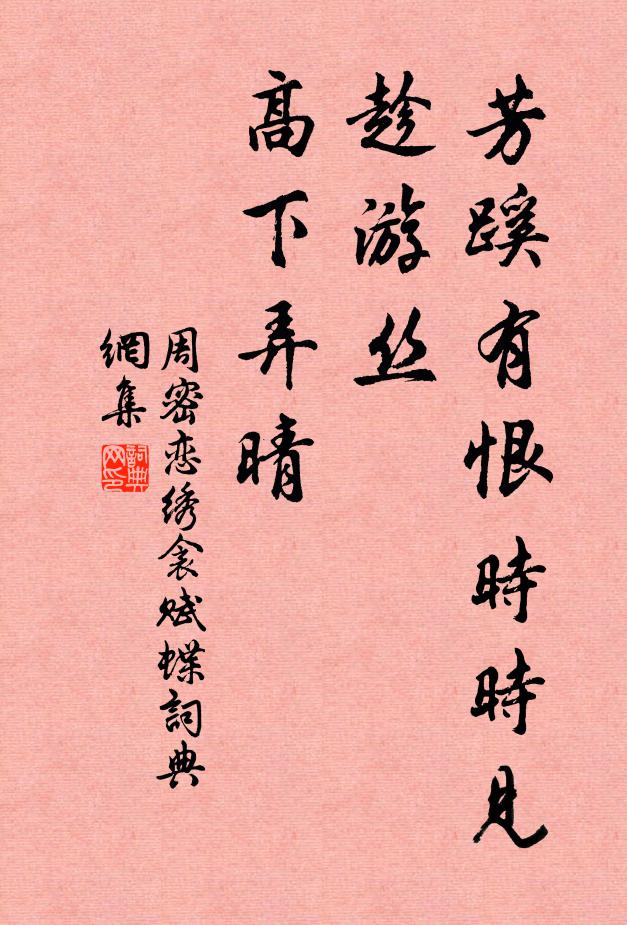 芳蹊有恨時時見
趁游丝
高下弄晴
周密恋绣衾赋蝶詞典
網集
詞典网印